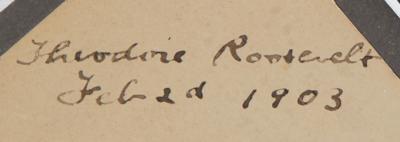 Theodore Roosevelt
Feb 2d 1903